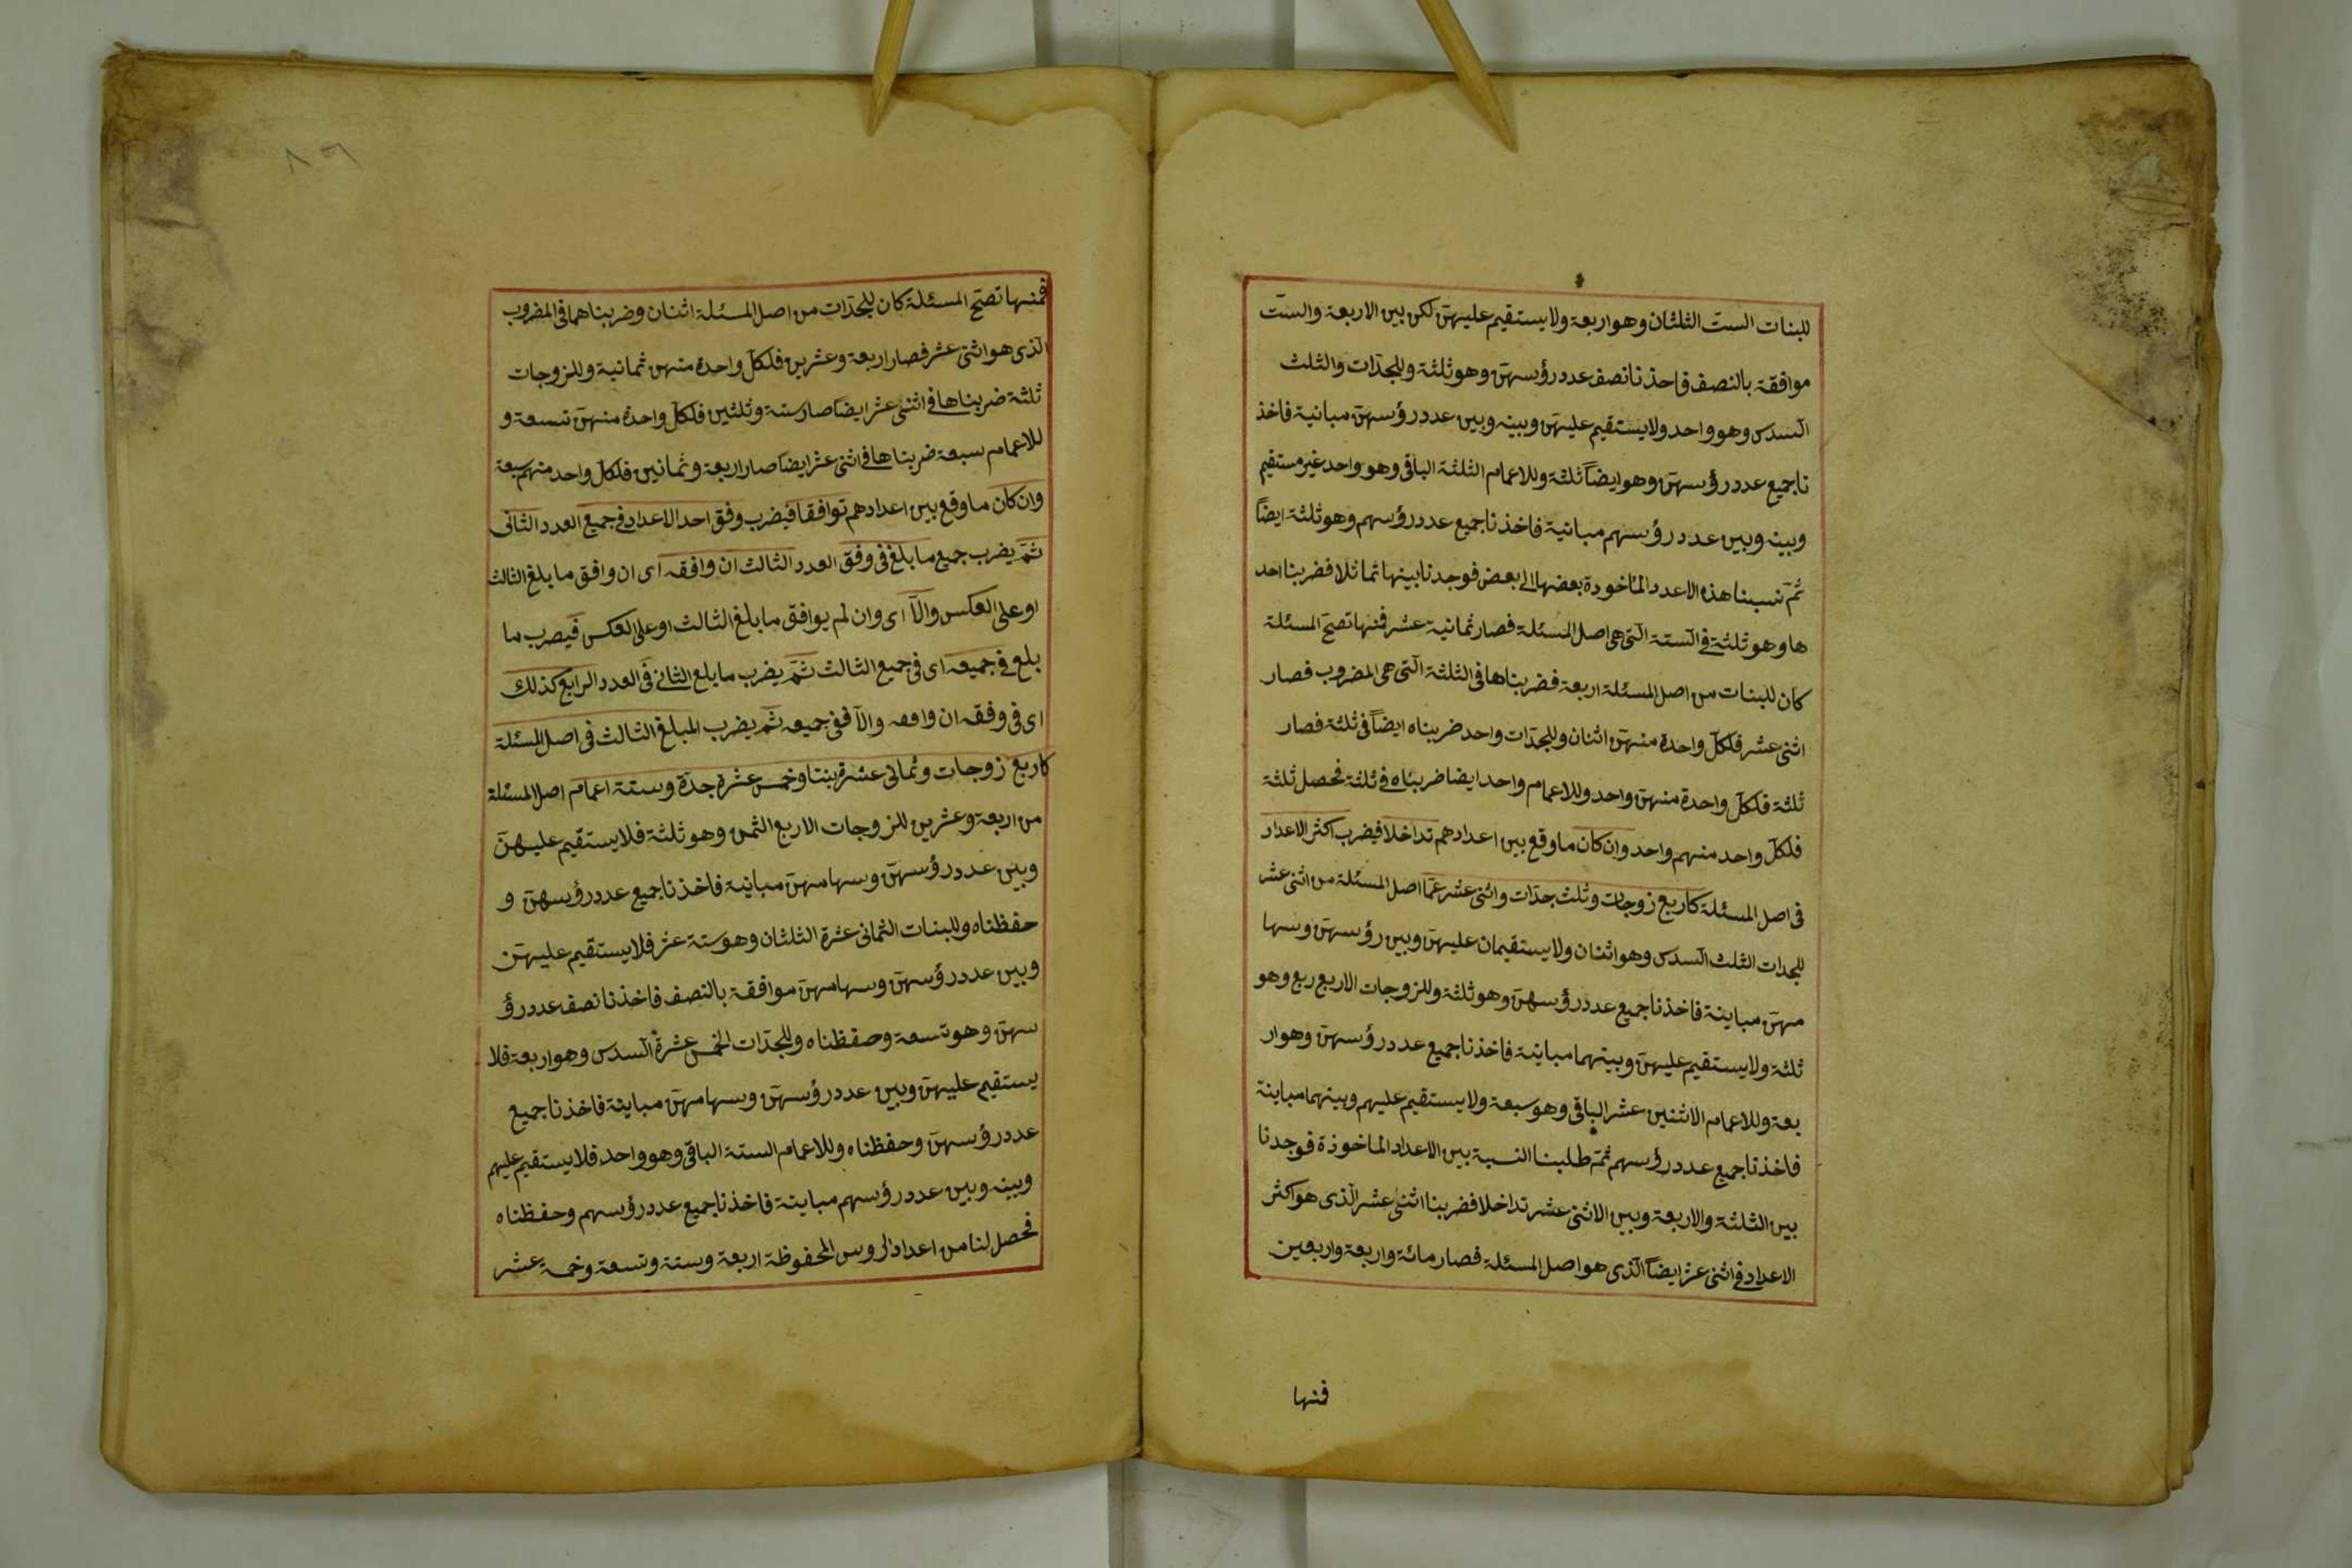 للبنات الستّ الثلثان وهو اربعة ولا يستقيم عليهنّ لكن بين الاربعة والستّ
موافقة بالنصف فاخذنا نصف عدد رؤسهنّ وهو ثلثة وللجدّات والثلث
السّدس وهو واحد ولا يستقيم عليهنّ وبينه وبين عدد رؤسهنّ مباينة فاخذ
نا جميع عدد رؤسهنّ وهو ايضاً ثلثة وللاعمام الثلثة الباقى وهو واحد غير مستقيم
وبينه وبين عدد رؤسهم مباينة فاخذنا جميع عدد رؤسهم وهو ثلثة ايضاً
ثمّ نسبنا هذه الاعدد المأخودة بعضها الى بعض فوجدنا بينها تماثلا فضربنا احد
ها وهو ثلثة فى السّتة الّتى هى اصل المسئلة فصار ثمانية عشر فمنها تصحّ المسئلة
كان للبنات من اصل المسئلة اربعة فضربناها فى الثلثة الّتى هى المضروب فصار
اثنى عشر فلكلّ واحدة منهنّ اثنان وللجدّات واحد ضربناه ايضاً فى ثلثة فصار
ثلثة فلكلّ واحدة منهنّ واحد وللاعمام واحد ايضا ضربناه فى ثلثة فحصل ثلثة
فلكلّ واحد منهم واحد وان كان ما وقع بين اعدادهم تداخلا فيضرب اكثر الاعداد
فى اصل المسئلة كاربع زوجات وثلث جدّات واثنى عشر عمّا اصل المسئلة من اثنى عشر
للجدات الثلث السّدس وهو اثنان ولا يستقيمان عليهنّ وبين رؤسهنّ وسها
مهنّ مباينة فاخذنا جميع عدد رؤسهنّ وهو ثلثة وللزوجات الاربع ربع وهو
ثلثة ولا يستقيم عليهنّ وبينهما مباينة فاخذنا جميع عدد رؤسهنّ وهو ار
بعة وللاعمام الاثنين عشر الباقى وهو سبعة ولا يستقيم عليهم وبينهما مباينة
فاخذنا جميع عدد رؤسهم ثمّ طلبنا النسبة بين الاعداد الماخوذة فوجدنا
بين الثلثة والاربعة وبين الاثنى عشر تداخلا فضربنا اثنى عشر الّذى هو اكثر
الاعداد فى اثنى عشر ايضاً الّذى هو اصل المسئلة فصار مائة واربعة واربعين
فمنها
٨٩
فمنها تصحّ المسئلة كان للجدّات من اصل المسئلة اثنان وضربناهما فى المضروب
الّذى هو اثنى عشر فصار اربعة وعشرين فلكلّ واحدة منهن ثمانية وللزوجات
ثلثة ضربناها فى اثنى عشر ايضا صار ستة وثلثين فلكلّ واحدة منهنّ تسعة و
للاعمام سبعة ضربناها فى اثنى عشر ايضا صار اربعة وثمانين فلكلّ واحد منهم سبعة
وان كان ما وقع بين اعدادهم توافقا فيضرب وفق احد الاعداد فى جميع العدد الثانى
ثمّ يضرب جميع ما بلغ فى وفق العدد الثالث ان وافقه اى ان وافق ما بلغ الثالث
او على العكس والّا اى وان لم يوافق ما بلغ الثالث او على العكس فيضرب ما
بلغ فى جميعه اى فى جميع الثالث ثمّ يضرب ما بلغ الثانى فى العدد الرابع كذلك
اى فى وفقه ان وافقه والّا ففى جميعه ثمّ يضرب المبلغ الثالث فى اصل المسئلة
كاربع زوجات وثمانى عشرة بنتا وخمس عشرة جدّة وستة اعمام اصل المسئلة
من اربعة وعشرين للزوجات الاربع الثمن وهو ثلثة فلا يستقيم عليهنّ
وبين عدد رؤسهنّ وسهامهنّ مباينة فاخذنا جميع عدد رؤسهنّ و
حفظناه وللبنات الثمانى عشرة الثلثان وهو ستة عشر فلا يستقيم عليهنّ
وبين عدد رؤسهنّ وسهامهنّ موافقة بالنصف فاخذنا نصف عدد رؤ
سهنّ وهو تسعة وحفظناه وللجدّات الخمس عشرة السّدس وهو اربعة فلا
يستقيم عليهنّ وبين عدد رؤسهنّ وسهامهنّ مباينة فاخذنا جميع
عدد رؤسهنّ وحفظناه وللاعمام الستة الباقى وهو واحد فلا يستقيم عليهم
وبينه وبين عدد رؤسهم مباينة فاخذنا جميع عدد رؤسهم وحفظناه
فحصل لنا من اعداد الروس المحفوظة اربعة وستة وتسعة وخمسة عشر